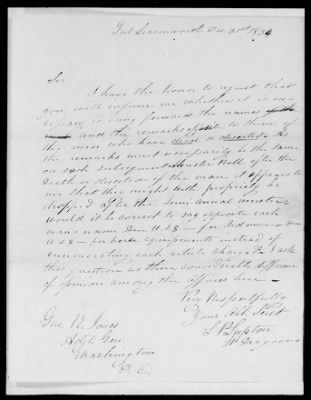 Fort Leavenworth Dec. 31st 1834
Sir
I have the honor to request that
you will inform me whether it is ne-
cessary to bring forward the names
and the remarks opposite to them of
the men who have died or deserted. As
the remarks must necessarily be the same
on each subsequent Muster Roll after the
Death or desertion of the man it appears to
me that they might with propriety be
dropped after the semi annual muster.
Would it be correct to say opposite each
man's name Due U.S. $ — for Ord — Due
U.S. $ — for horse equipments instead of
enumerating each article charged. I ask
this question as there is considerable difference
of opinion among the officers here —
Very Respectfully
Your Obt. Servt
L P Lupton
Lt Dragoons
Gen. R. Jones
Adjt. Gen.
Washington
D. C.